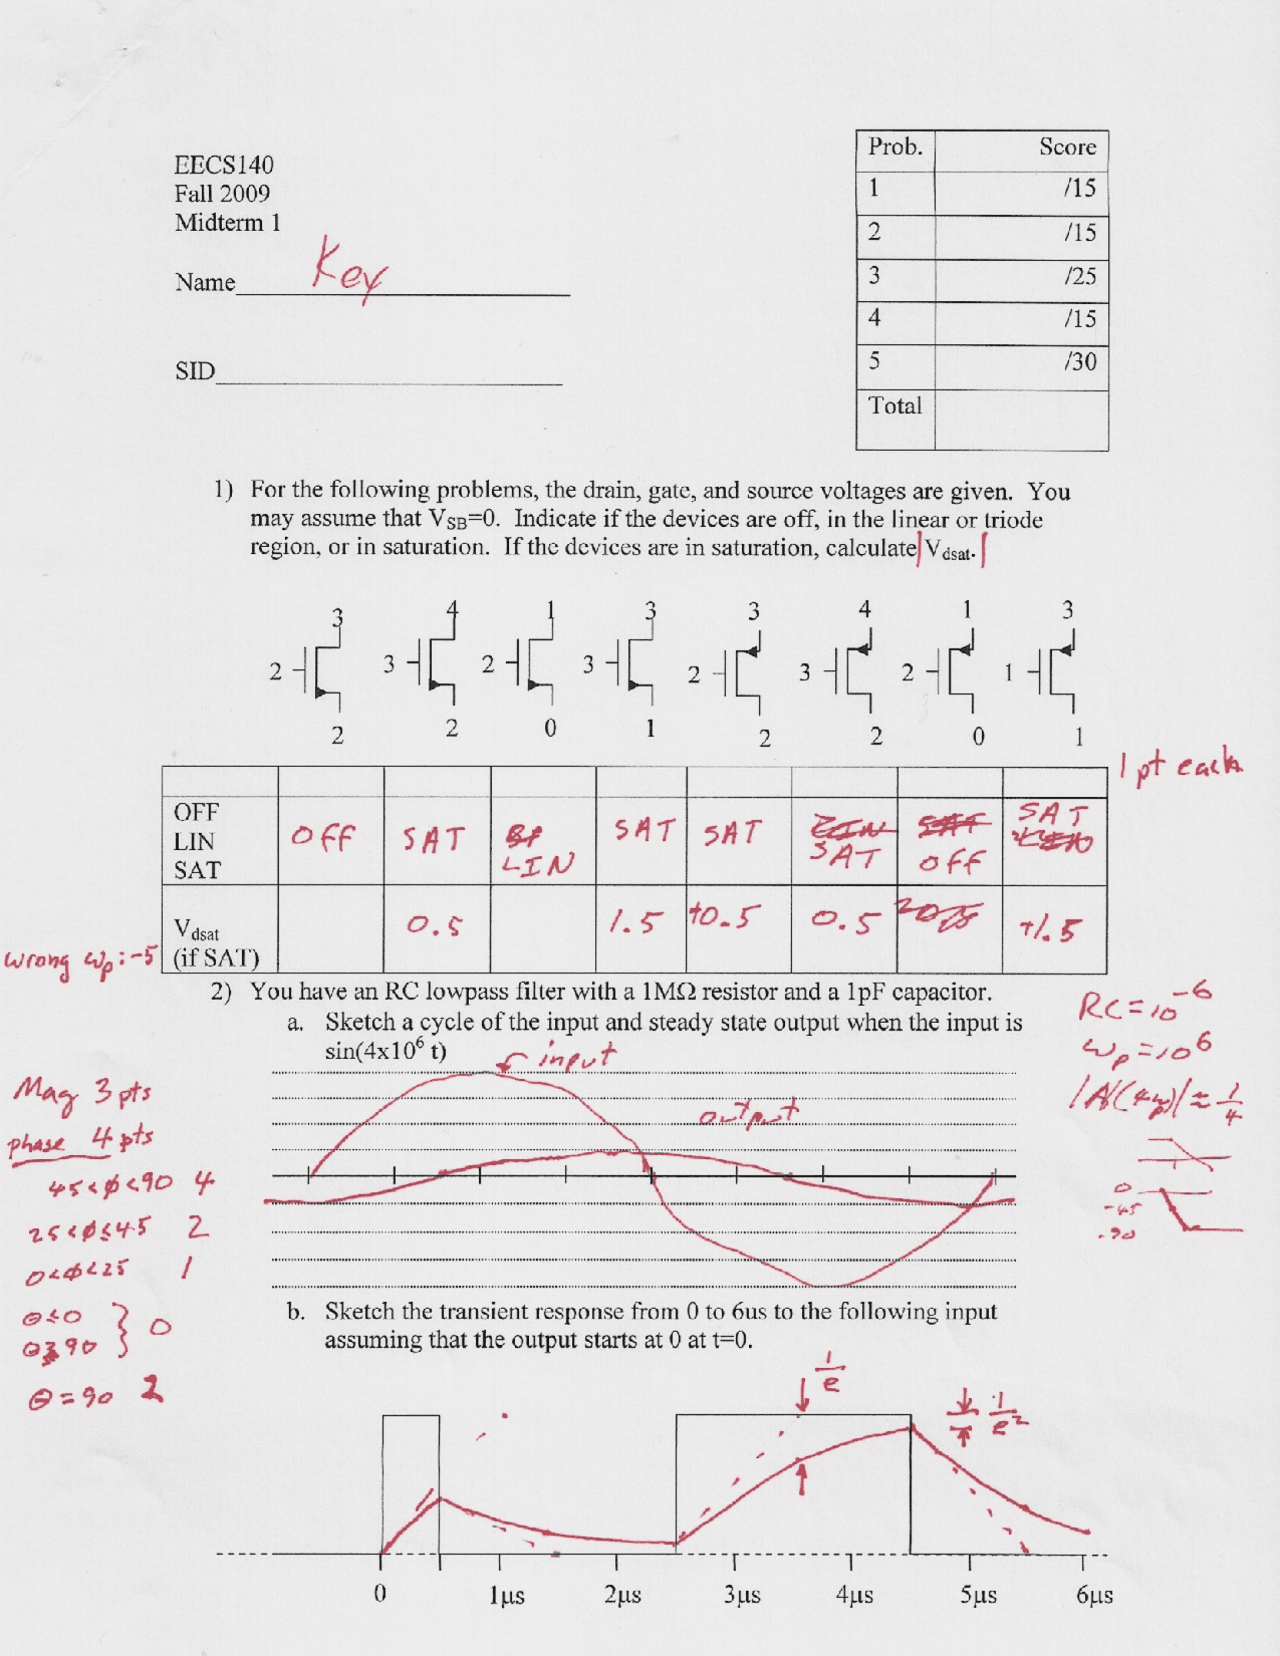 EECS140
Fall 2009
Midterm 1
Name Key
SID
Prob. Score
1 /15
2 /15
3 /25
4 /15
5 /30
Total
1) For the following problems, the drain, gate, and source voltages are given. You
may assume that VSB=0. Indicate if the devices are off, in the linear or triode
region, or in saturation. If the devices are in saturation, calculate |Vdsat.|
3 4 1 3 3 4 1 3
2 3 2 3 2 3 2 1
2 2 0 1 2 2 0 1
1 pt each
OFF
LIN
SAT
OFF SAT LIN SAT SAT SAT OFF SAT
Vdsat
(if SAT)
0.5 1.5 +0.5 0.5 +1.5
wrong ωp: -5
2) You have an RC lowpass filter with a 1MΩ resistor and a 1pF capacitor.
a. Sketch a cycle of the input and steady state output when the input is
sin(4x10⁶ t)
input
output
RC = 10⁻⁶
ωp = 10⁶
|A(4ωp)| ≈ 1/4
0
-45
-90
Mag 3 pts
phase 4 pts
45<ϕ<90 4
25<ϕ≤45 2
0<ϕ<25 1
θ≤0
θ≥90 } 0
θ=90 2
b. Sketch the transient response from 0 to 6us to the following input
assuming that the output starts at 0 at t=0.
1/e
1/e²
0 1μs 2μs 3μs 4μs 5μs 6μs